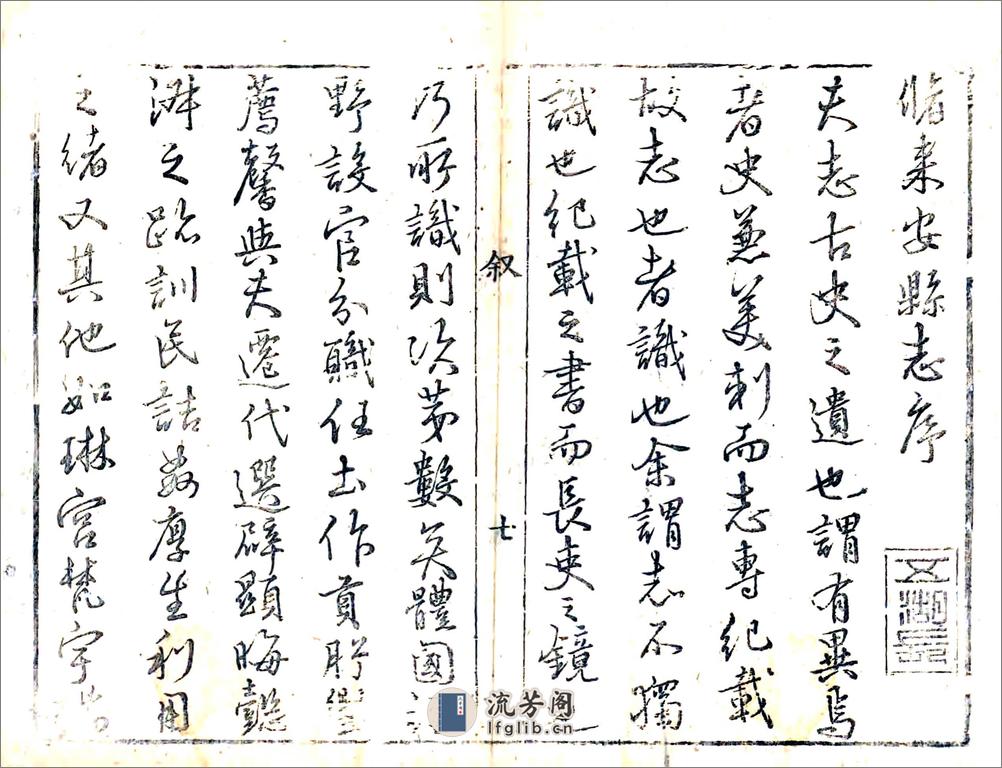 脩来安縣志序
五湖長
夫志古史之遺也謂有異焉
者史兼美刺而志專紀載
故志也者識也余謂志不獨
識也紀載之書而長吏之鏡
叙
七
乃所識則次第數矣體國
野設官分職任土作貢
薦馨與夫遷代選辟顯晦懿
之訓民詰姦厚生利用
之緒又其他如琳宮梵宇
流芳阁
lfglib.cn